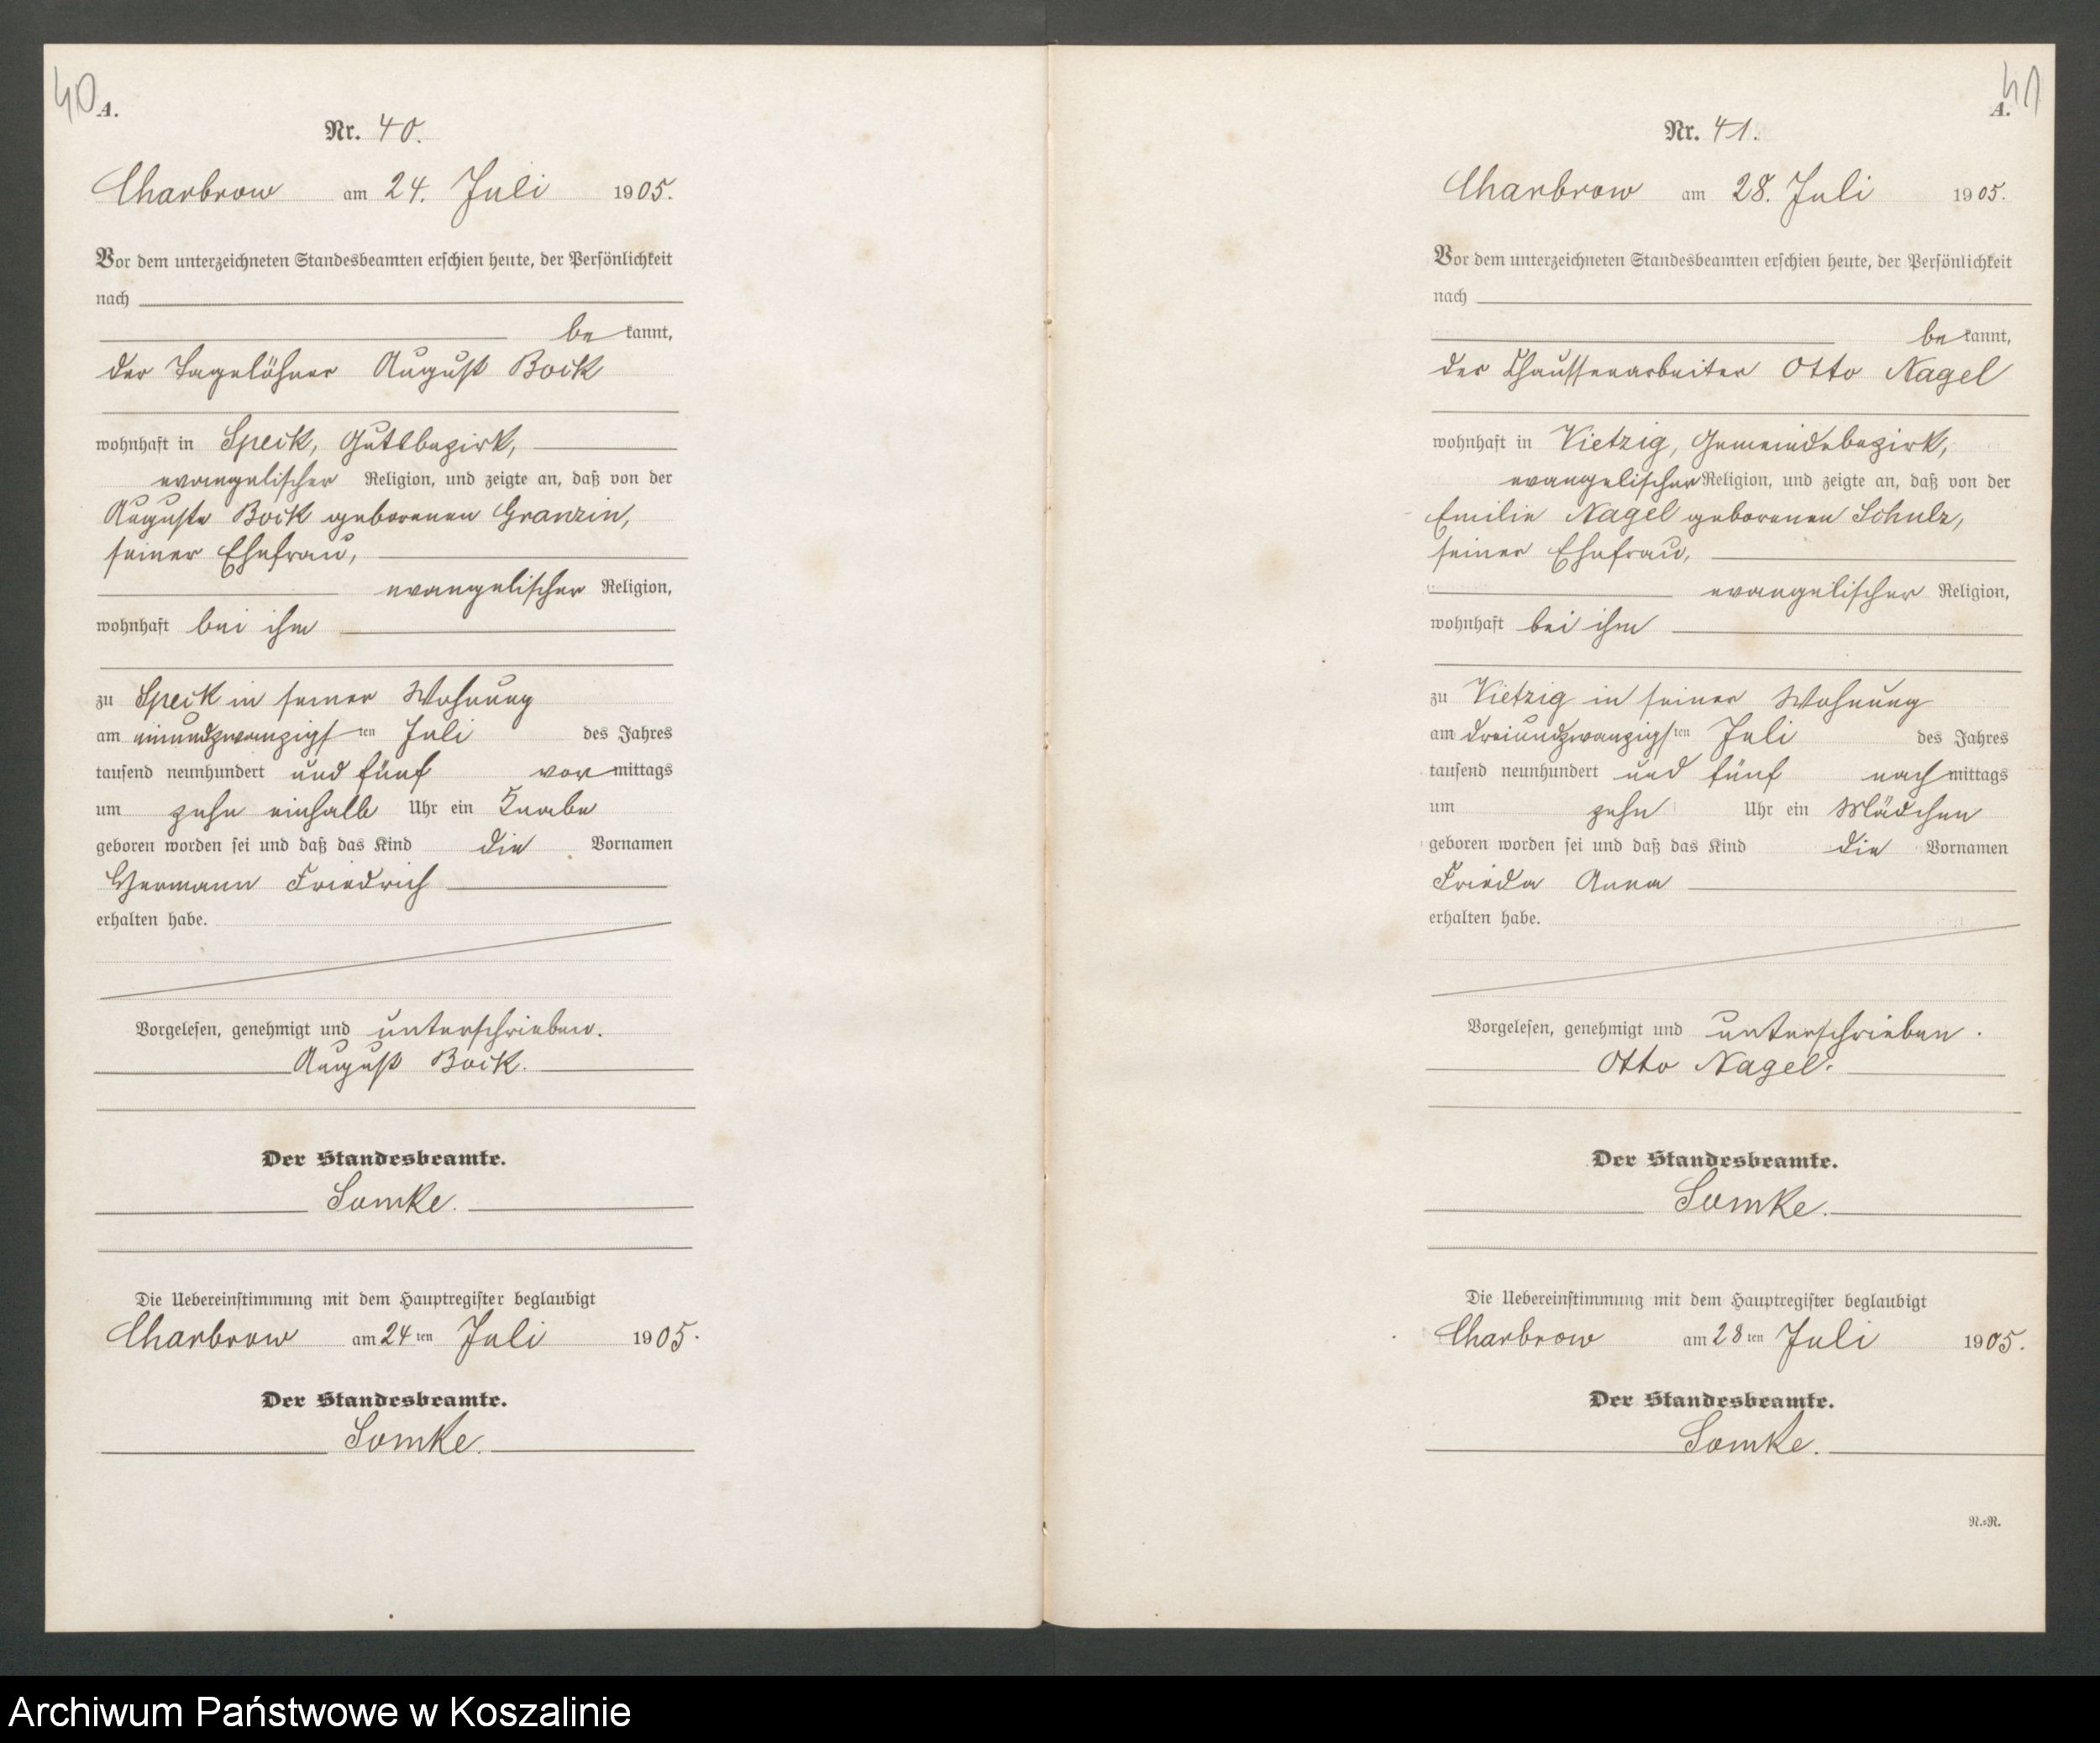 40
A.
Nr. 40.
Charbrow am 24. Juli 1905.
Vor dem unterzeichneten Standesbeamten erschien heute, der Persönlichkeit
nach
be kannt,
der Tagelöhner August Bock
wohnhaft in Speck, Gutsbezirk,
evangelischer Religion, und zeigte an, daß von der
Auguste Bock geborenen Granzin,
seiner Ehefrau,
evangelischer Religion,
wohnhaft bei ihm
zu Speck in seiner Wohnung
am einundzwanzigsten Juli des Jahres
tausend neunhundert und fünf vormittags
um zehn einhalb Uhr ein Knabe
geboren worden sei und daß das Kind die Vornamen
Hermann Friedrich
erhalten habe.
Vorgelesen, genehmigt und unterschrieben.
August Bock.
Der Standesbeamte.
Lomke.
Die Uebereinstimmung mit dem Hauptregister beglaubigt
Charbrow am 24ten Juli 1905.
Der Standesbeamte.
Lomke.
41
A.
Nr. 41.
Charbrow am 28. Juli 1905.
Vor dem unterzeichneten Standesbeamten erschien heute, der Persönlichkeit
nach
be kannt,
der Chausseearbeiter Otto Nagel
wohnhaft in Vietzig, Gemeindebezirk,
evangelischer Religion, und zeigte an, daß von der
Emilie Nagel geborenen Schulz,
seiner Ehefrau,
evangelischer Religion,
wohnhaft bei ihm
zu Vietzig in seiner Wohnung
am dreiundzwanzigsten Juli des Jahres
tausend neunhundert und fünf nachmittags
um zehn Uhr ein Mädchen
geboren worden sei und daß das Kind die Vornamen
Frieda Anna
erhalten habe.
Vorgelesen, genehmigt und unterschrieben.
Otto Nagel.
Der Standesbeamte.
Lomke.
Die Uebereinstimmung mit dem Hauptregister beglaubigt
Charbrow am 28ten Juli 1905.
Der Standesbeamte.
Lomke.
N.=R.
Archiwum Państwowe w Koszalinie